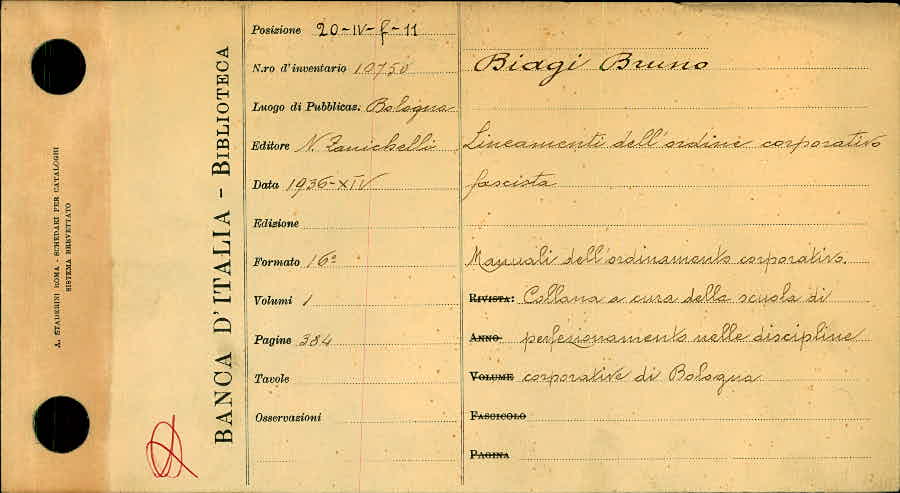 A. STADERINI ROMA - SCHEDARI PER CATALOGHI
SISTEMA BREVETTATO
BANCA D'ITALIA - BIBLIOTECA
Posizione 20-IV-f-11
N.ro d'inventario 10750
Luogo di Pubblicaz. Bologna
Editore N. Zanichelli
Data 1936-XIV
Edizione
Formato 16º
Volumi 1
Pagine 384
Tavole
Osservazioni
Biagi Bruno
Lineamenti dell'ordine corporativo
fascista
Manuali dell'ordinamento corporativo.
RIVISTA: Collana a cura della scuola di
ANNO perfezionamento nelle discipline
VOLUME corporative di Bologna
FASCICOLO
PAGINA